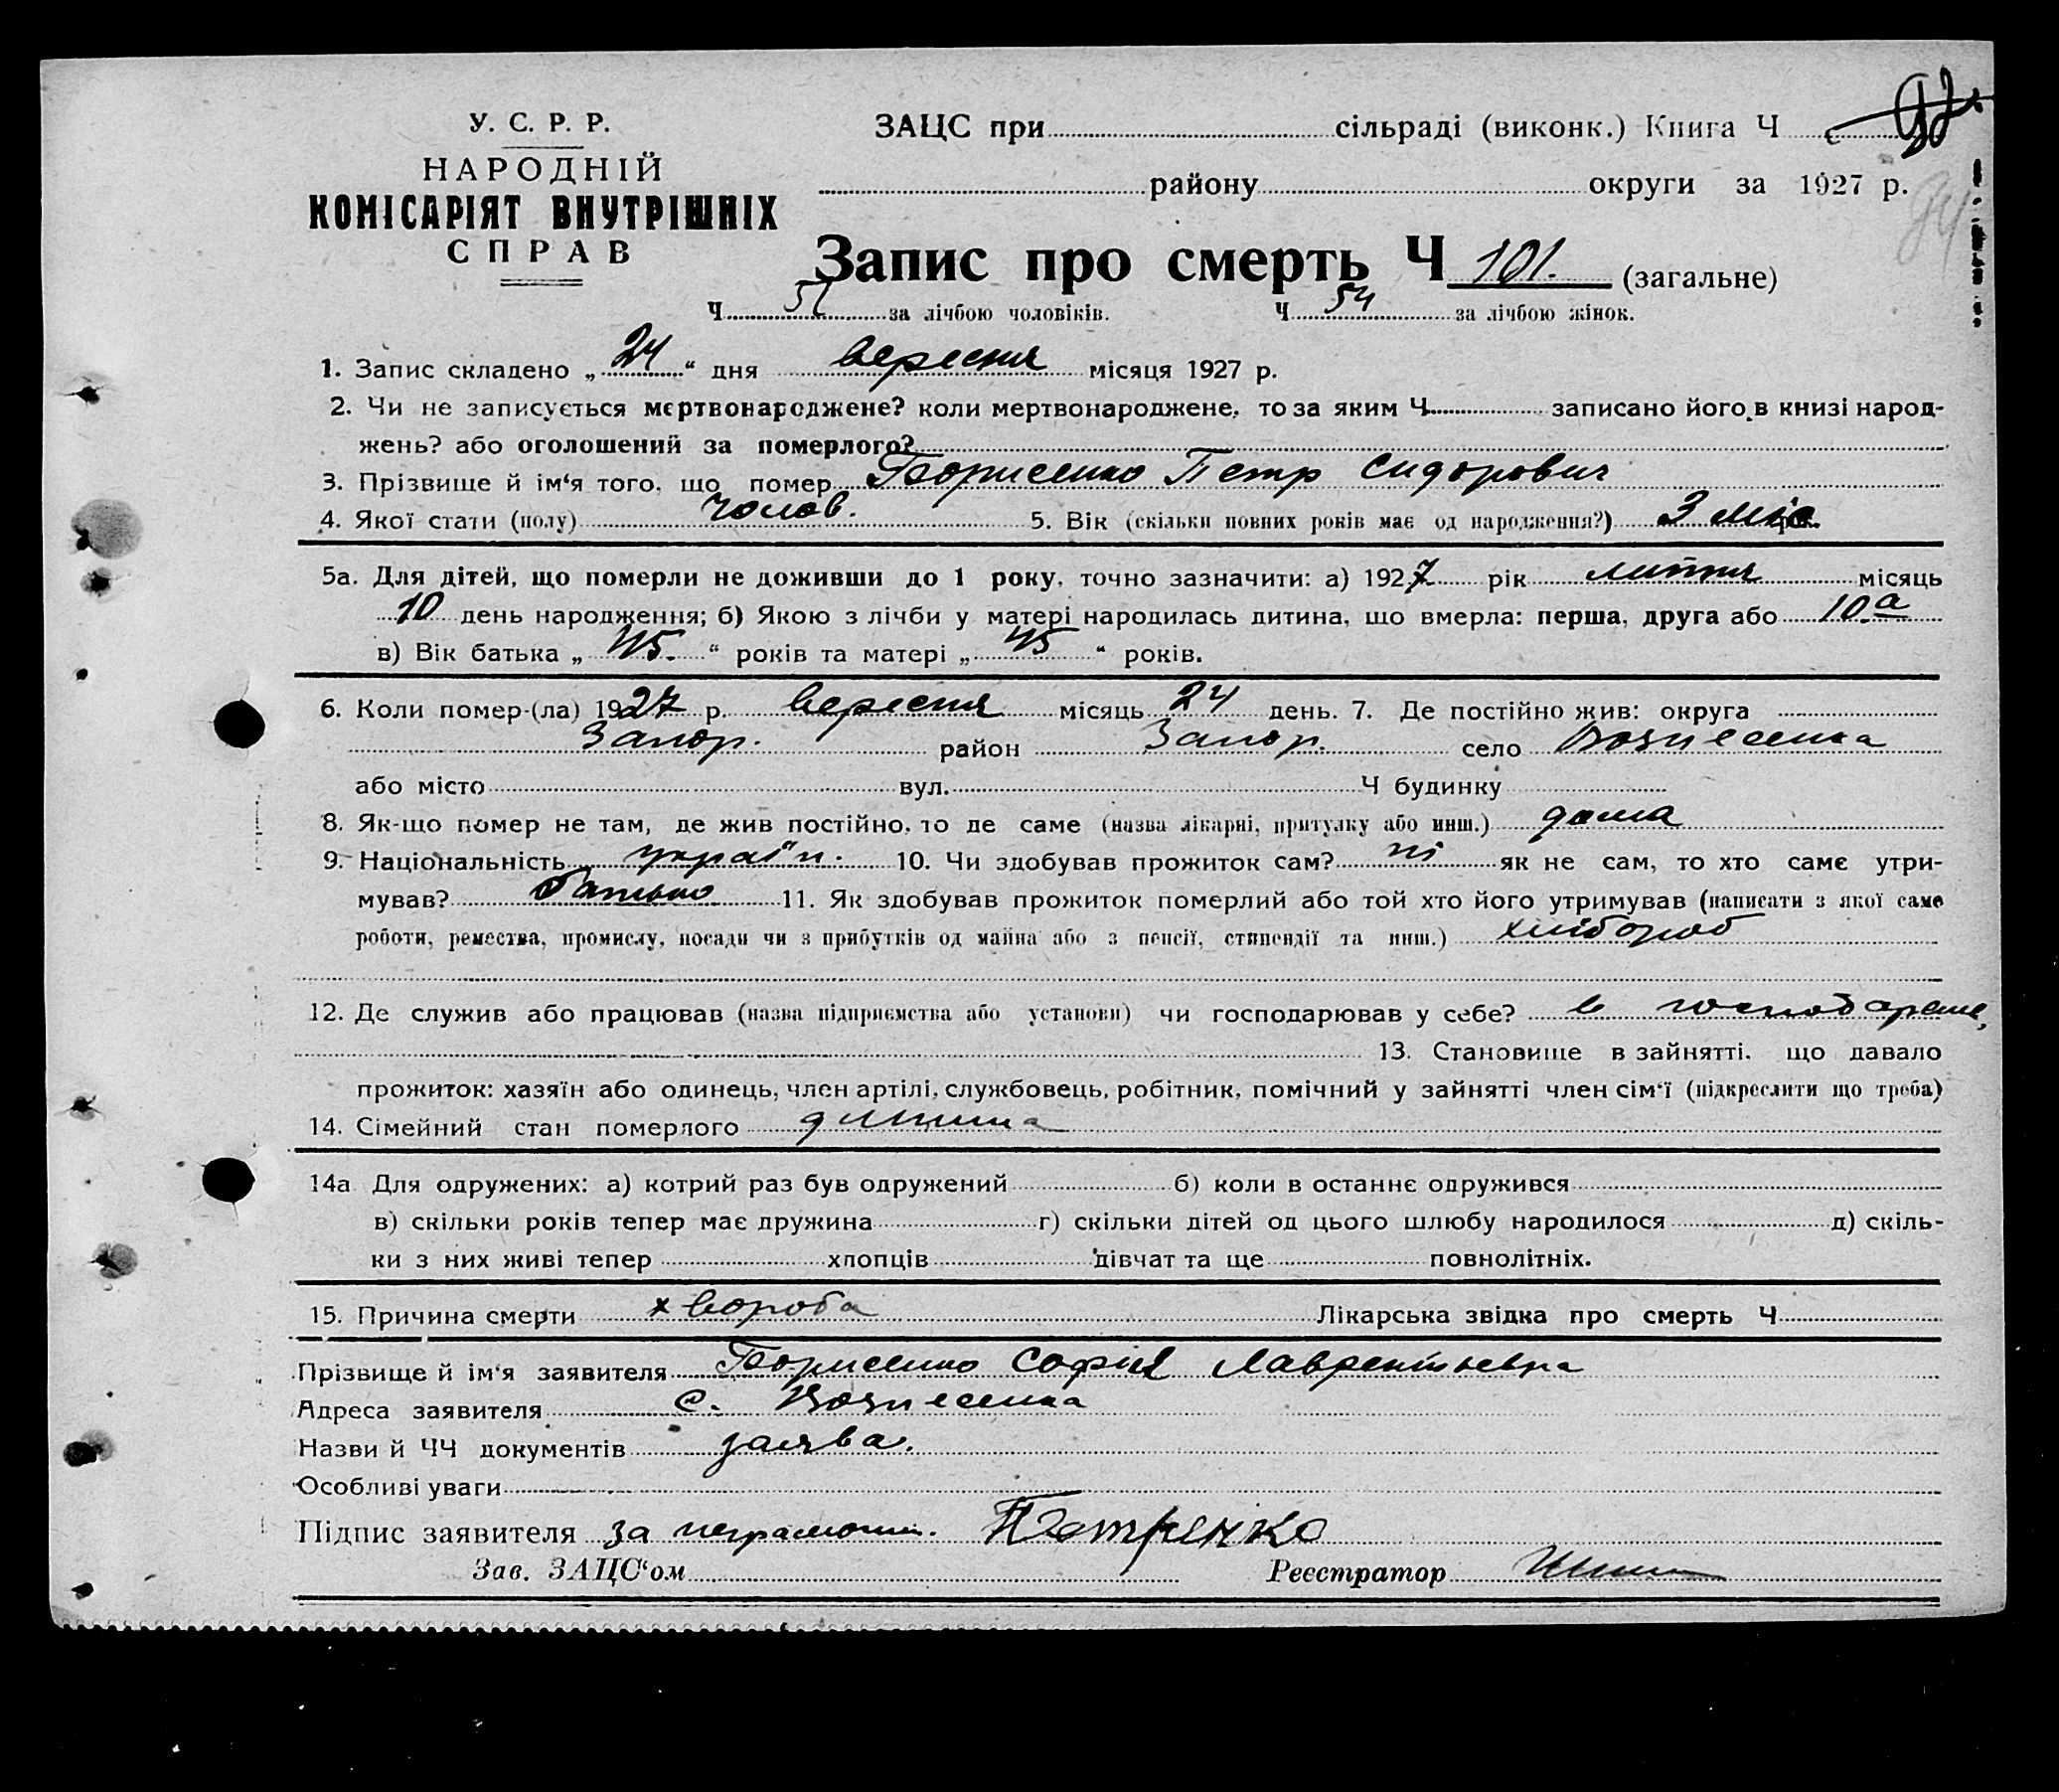 У. С. Р. Р.
НАРОДНІЙ
КОМІСАРІЯТ ВНУТРІШНІХ
СПРАВ
ЗАЦС при сільраді (виконк.) Книга Ч
району округи за 1927 р.
94
Запис про смерть Ч 101. (загальне)
Ч за лічбою чоловіків. Ч 54 за лічбою жінок.
1. Запис складено „24“ дня вересня місяця 1927 р.
2. Чи не записується мертвонароджене? коли мертвонароджене, то за яким Ч записано його в книзі народ-
жень? або оголошений за померлого?
3. Прізвище й ім‘я того, що помер Борисенко Петр Сидорович
4. Якої стати (полу) чолов. 5. Вік (скільки повних років має од народження?) 3 міс.
5а. Для дітей, що померли не доживши до 1 року, точно зазначити: а) 1927 рік липня місяць
10 день народження; б) Якою з лічби у матері народилась дитина, що вмерла: перша, друга або 10.а
в) Вік батька „45.“ років та матері „45“ років.
6. Коли помер-(ла) 1927 р. вересня місяць 24 день. 7. Де постійно жив: округа
Запор. район Запор. село Вознесенка
або місто вул. Ч будинку
8. Як-що помер не там, де жив постійно, то де саме (назва лікарні, притулку або инш.) дома
9. Національність україн. 10. Чи здобував прожиток сам? ні як не сам, то хто саме утри-
мував? батько 11. Як здобував прожиток померлий або той хто його утримував (написати з якої саме
роботи, ремества, промислу, посади чи з прибутків од майна або з пенсії, стипендії та инш.) хлібороб
12. Де служив або працював (назва підприємства або установи) чи господарював у себе? в
13. Становище в зайнятті, що давало
прожиток: хазяїн або одинець, член артілі, службовець, робітник, помічний у зайнятті член сім‘ї (підкреслити що треба)
14. Сімейний стан померлого дитина
14а Для одружених: а) котрий раз був одружений б) коли в останнє одружився
в) скільки років тепер має дружина г) скільки дітей од цього шлюбу народилося д) скіль-
ки з них живі тепер хлопців дівчат та ще повнолітніх.
15. Причина смерти хвороба Лікарська звідка про смерть Ч
Прізвище й ім‘я заявителя Борисенко Софія Лаврентьевна
Адреса заявителя с. Вознесенка
Назви й ЧЧ документів заява.
Особливі уваги
Підпис заявителя за неграмотн. Петренко
Зав. ЗАЦС‘ом Реєстратор